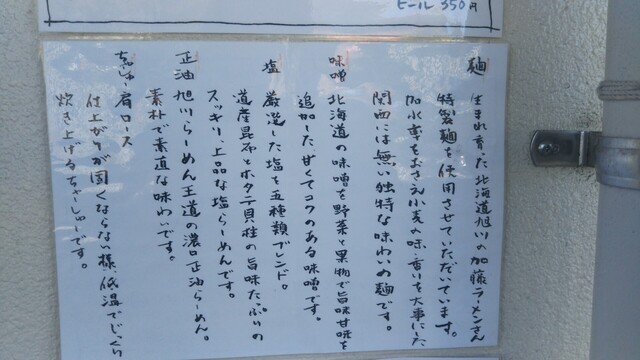 ビール 350円
麺 生まれ育った北海道旭川の加藤ラーメンさん
特製麺を使用させていただいています。
加水率をおさえ小麦の味・香りを大事にした
関西には無い独特な味わいの麺です。
味噌 北海道の味噌を野菜と果物で旨味甘味を
追加した、甘くてコクのある味噌です。
塩 厳選した塩を五種類ブレンド。
道産昆布とホタテ貝柱の旨味たっぷりの
スッキリ、上品な塩らーめんです。
正油 旭川らーめん王道の濃口正油らーめん。
素朴で素直な味わいです。
ちゃーしゅー 肩ロース
仕上がりが固くならない様、低温でじっくり
炊き上げるちゃーしゅーです。